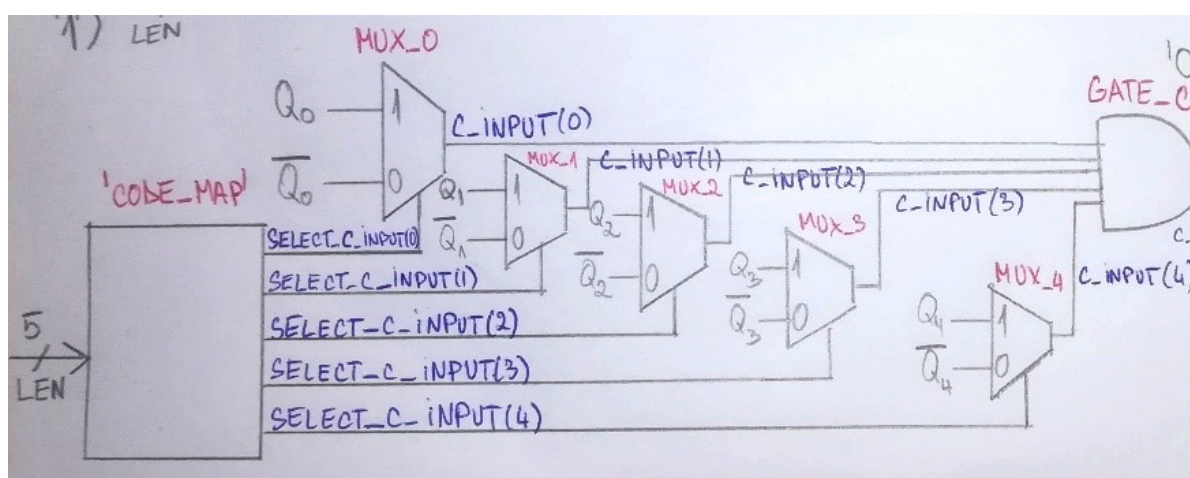 1) LEN
MUX_0
Q0
1
Q̅0
0
C_INPUT(0)
'CODE_MAP'
MUX_1
Q1
1
Q̅1
0
C_INPUT(1)
MUX_2
Q2
1
Q̅2
0
C_INPUT(2)
MUX_3
Q3
1
Q̅3
0
C_INPUT(3)
MUX_4
Q4
1
Q̅4
0
C_INPUT(4)
GATE_C
SELECT_C_INPUT(0)
SELECT_C_INPUT(1)
SELECT_C_INPUT(2)
SELECT_C_INPUT(3)
SELECT_C_INPUT(4)
5
LEN